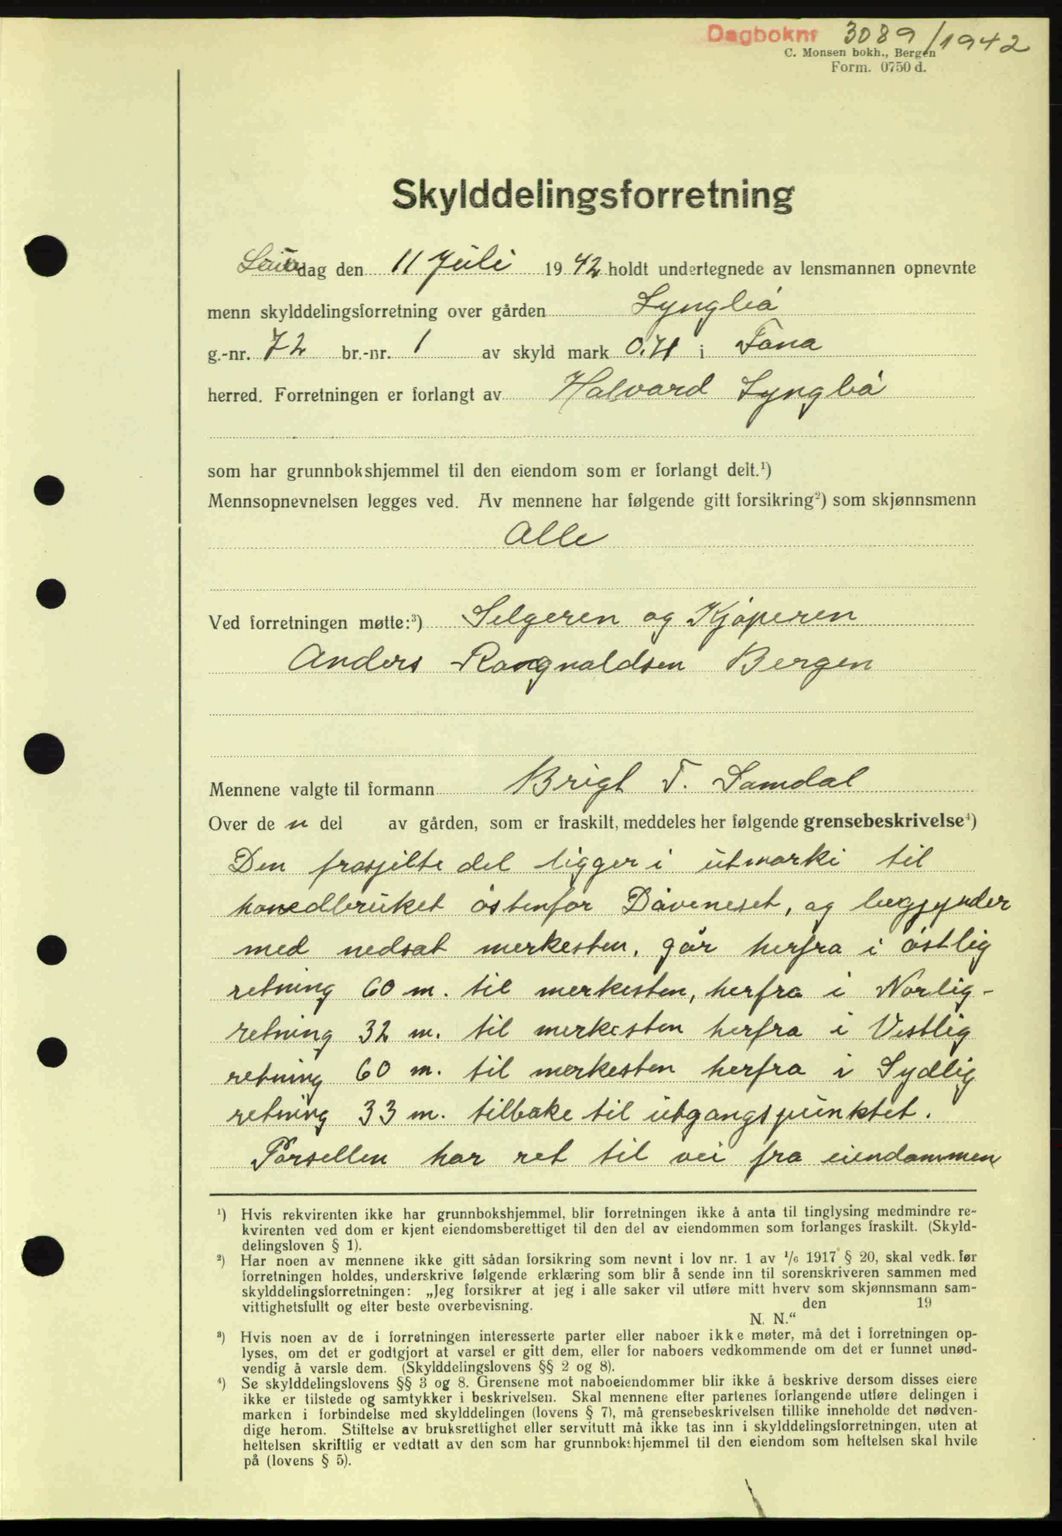 Dagboknr 3089/1942
C. Monsen bokh., Bergen
Form. 0750 d.
Skylddelingsforretning
dag den 11 Juli 1942 holdt undertegnede av lensmannen opnevnte
menn skylddelingsforretning over gården Lyngbø
g.-nr. 72 br.-nr. 1 av skyld mark 0.71 i Fana
herred. Forretningen er forlangt av Halvard Lyngbø
som har grunnbokshjemmel til den eiendom som er forlangt delt.¹)
Mennsopnevnelsen legges ved. Av mennene har følgende gitt forsikring²) som skjønnsmenn
Alle
Ved forretningen møtte:³) Selgeren og Kjøperen
Anders Rangnaldsen Bergen
Mennene valgte til formann Brigt T. Samdal
Over de n del av gården, som er fraskilt, meddeles her følgende grensebeskrivelse⁴)
Den frasjilte del ligger i utmarki til
hovedbruket østenfor Dåveneset, og begjynder
med nedsat merkesten, går herfra i østlig
retning 60 m. til merkesten, herfra i Norlig-
retning 32 m. til merkesten herfra i Vestlig
retning 60 m. til merkesten herfra i Sydlig
retning 33 m. tilbake til utgangspunktet.
Parsellen har ret til vei fra eiendommen
¹) Hvis rekvirenten ikke har grunnbokshjemmel, blir forretningen ikke å anta til tinglysing medmindre re-
kvirenten ved dom er kjent eiendomsberettiget til den del av eiendommen som forlanges fraskilt. (Skyld-
delingsloven § 1).
²) Har noen av mennene ikke gitt sådan forsikring som nevnt i lov nr. 1 av ¹/₆ 1917 § 20, skal vedk. før
forretningen holdes, underskrive følgende erklæring som blir å sende inn til sorenskriveren sammen med
skylddelingsforretningen: „Jeg forsikrer at jeg i alle saker vil utføre mitt hverv som skjønnsmann sam-
vittighetsfullt og efter beste overbevisning. den 19
N. N.“
³) Hvis noen av de i forretningen interesserte parter eller naboer ikke møter, må det i forretningen op-
lyses, om det er godtgjort at varsel er gitt dem, eller for naboers vedkommende om det er funnet unød-
vendig å varsle dem. (Skylddelingslovens §§ 2 og 8).
⁴) Se skylddelingslovens §§ 3 og 8. Grensene mot naboeiendommer blir ikke å beskrive dersom disses eiere
ikke er tilstede og samtykker i beskrivelsen. Skal mennene efter partenes forlangende utføre delingen i
marken i forbindelse med skylddelingen (lovens § 7), må grensebeskrivelsen tillike inneholde det nødven-
dige herom. Stiftelse av bruksrettighet eller servitutt må ikke tas inn i skylddelingsforretningen, uten at
heftelsen skriftlig er vedtatt av den som har grunnbokshjemmel til den eiendom som heftelsen skal hvile
på (lovens § 5).